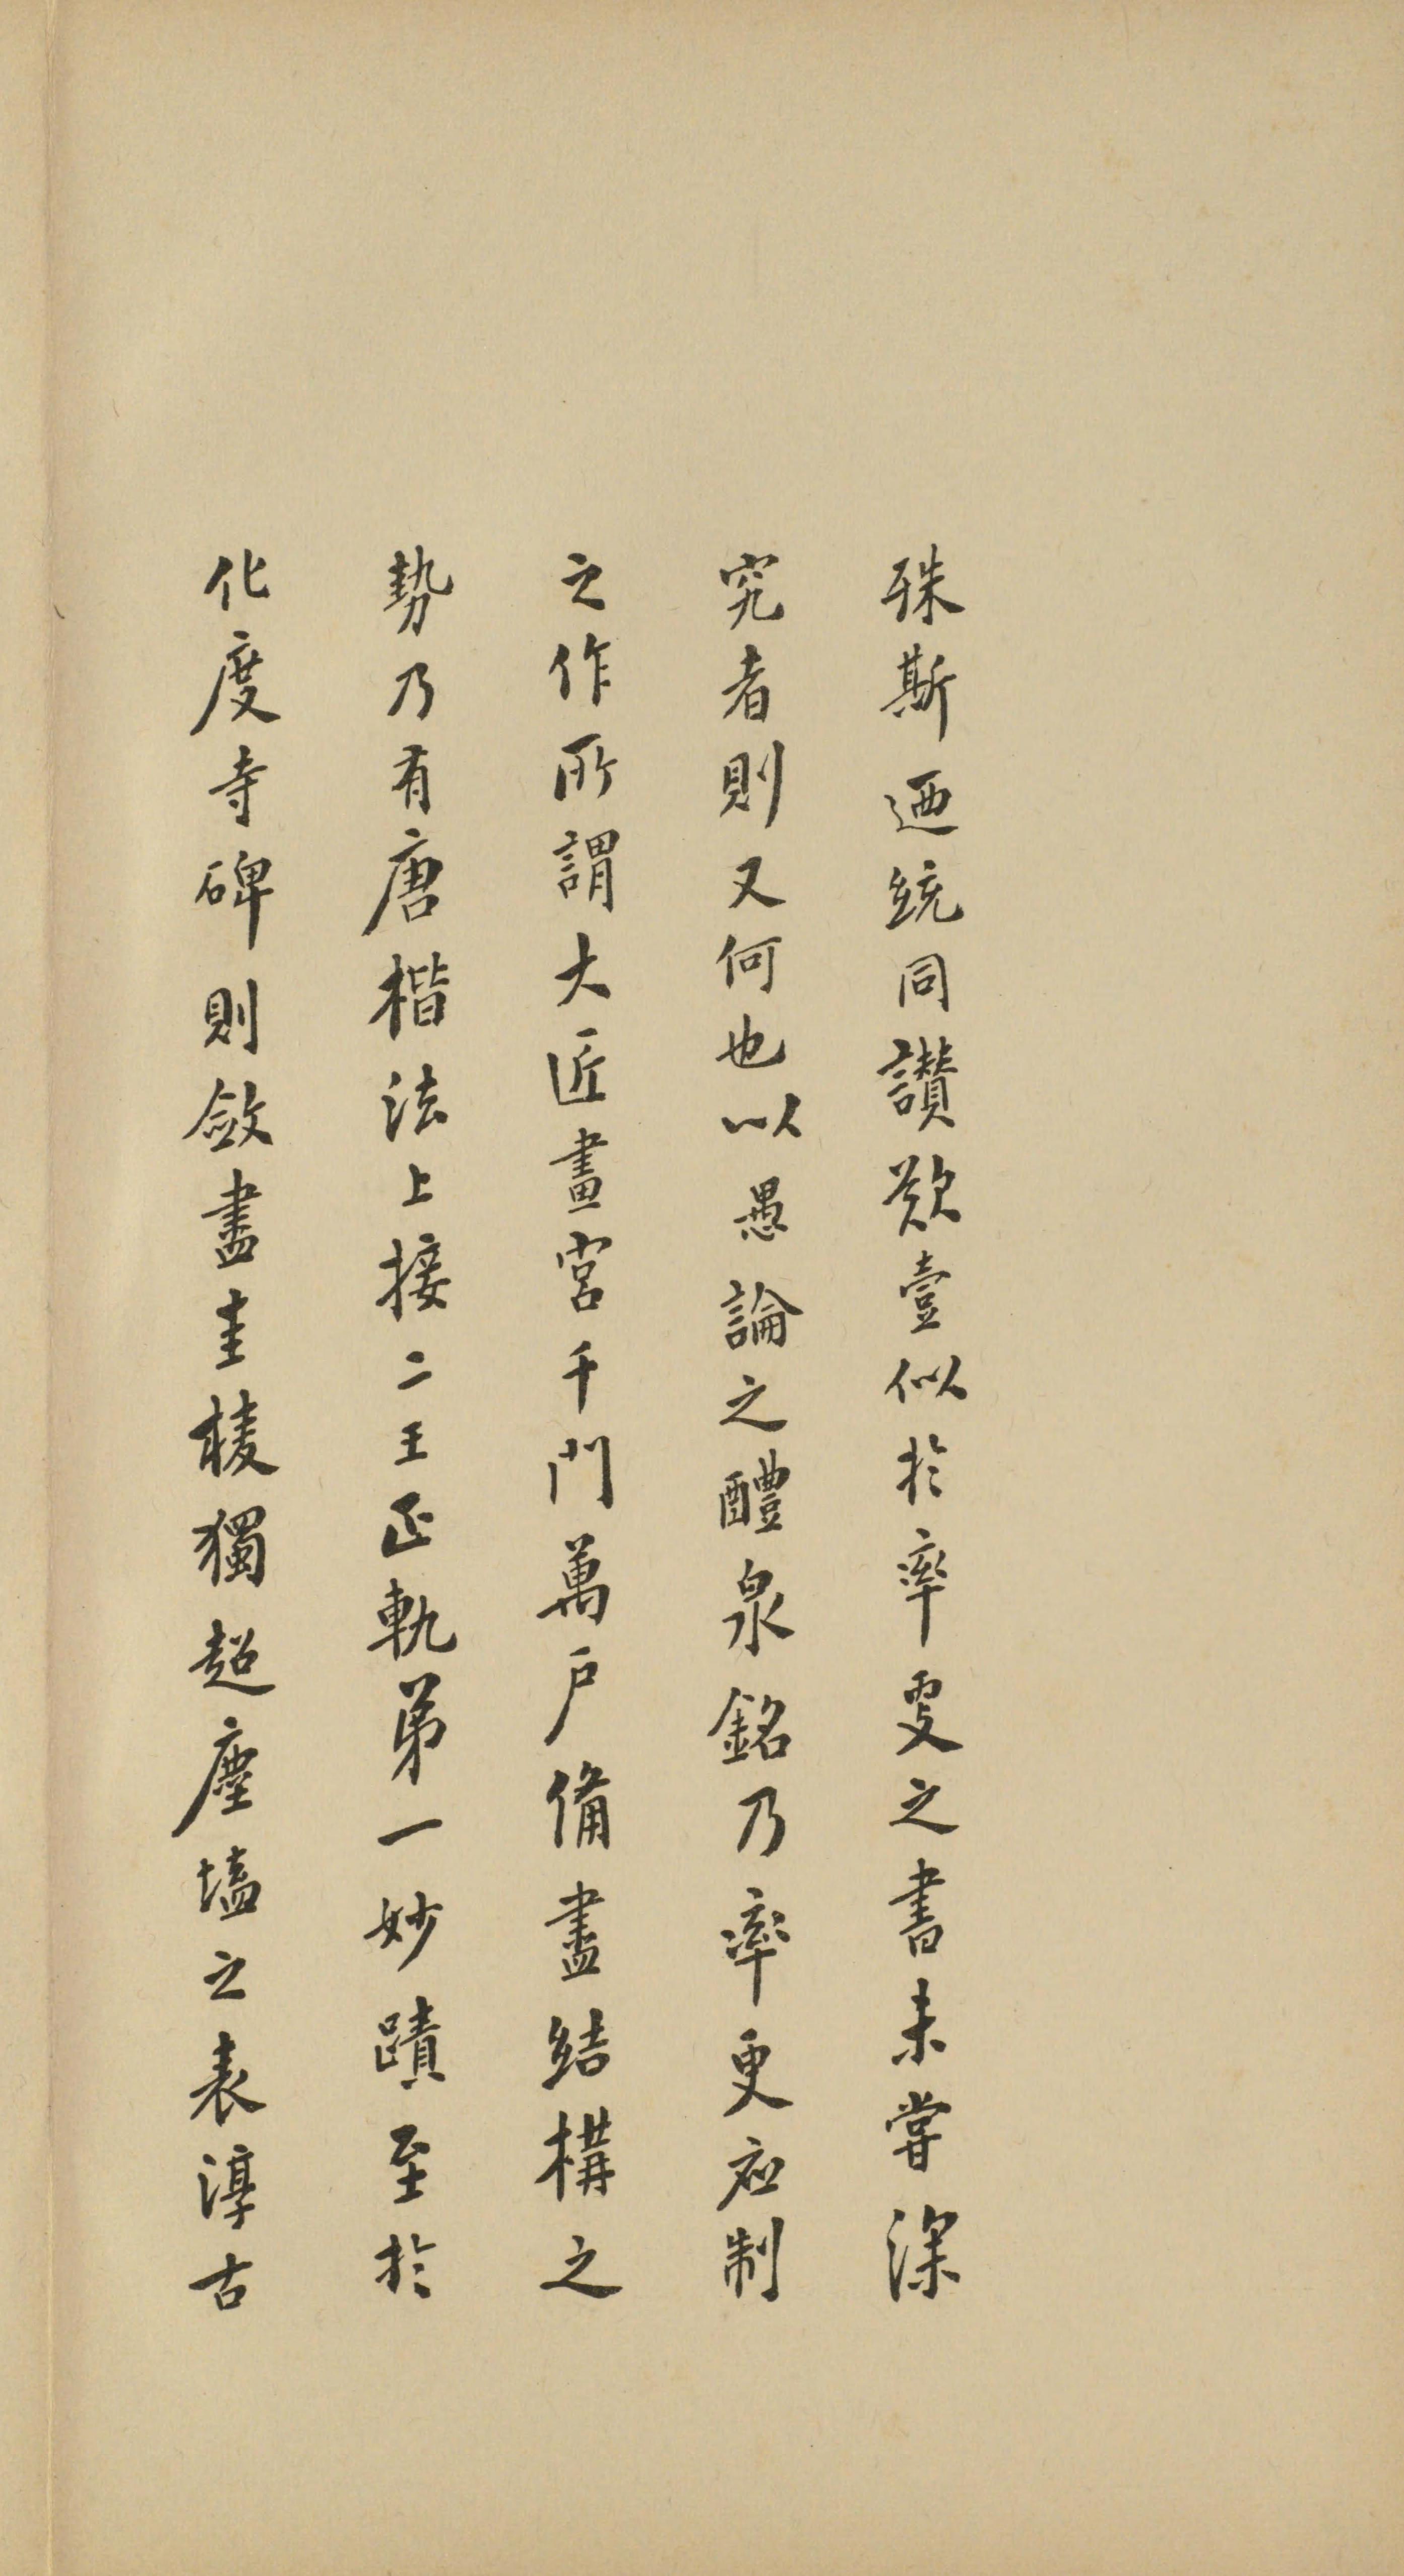 殊斯迺統同讚歎壹似於率更之書未嘗深
究者則又何也以愚論之醴泉銘乃率更應制
之作所謂大匠畫宮千門萬戶備盡結構之
勢乃有唐楷法上接二王正軌弟一妙蹟至於
化度寺碑則斂盡圭棱獨超塵壒之表淳古